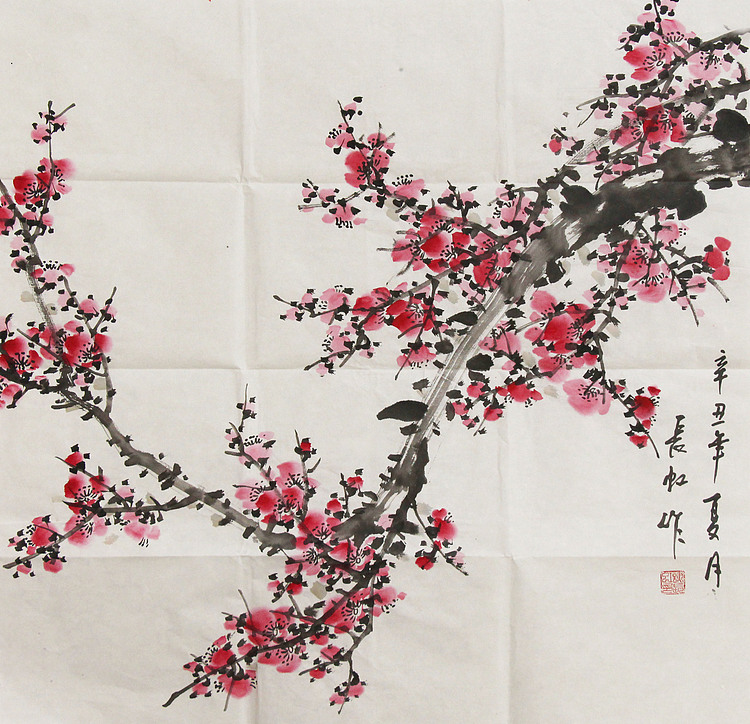 辛丑年夏月
長虹作